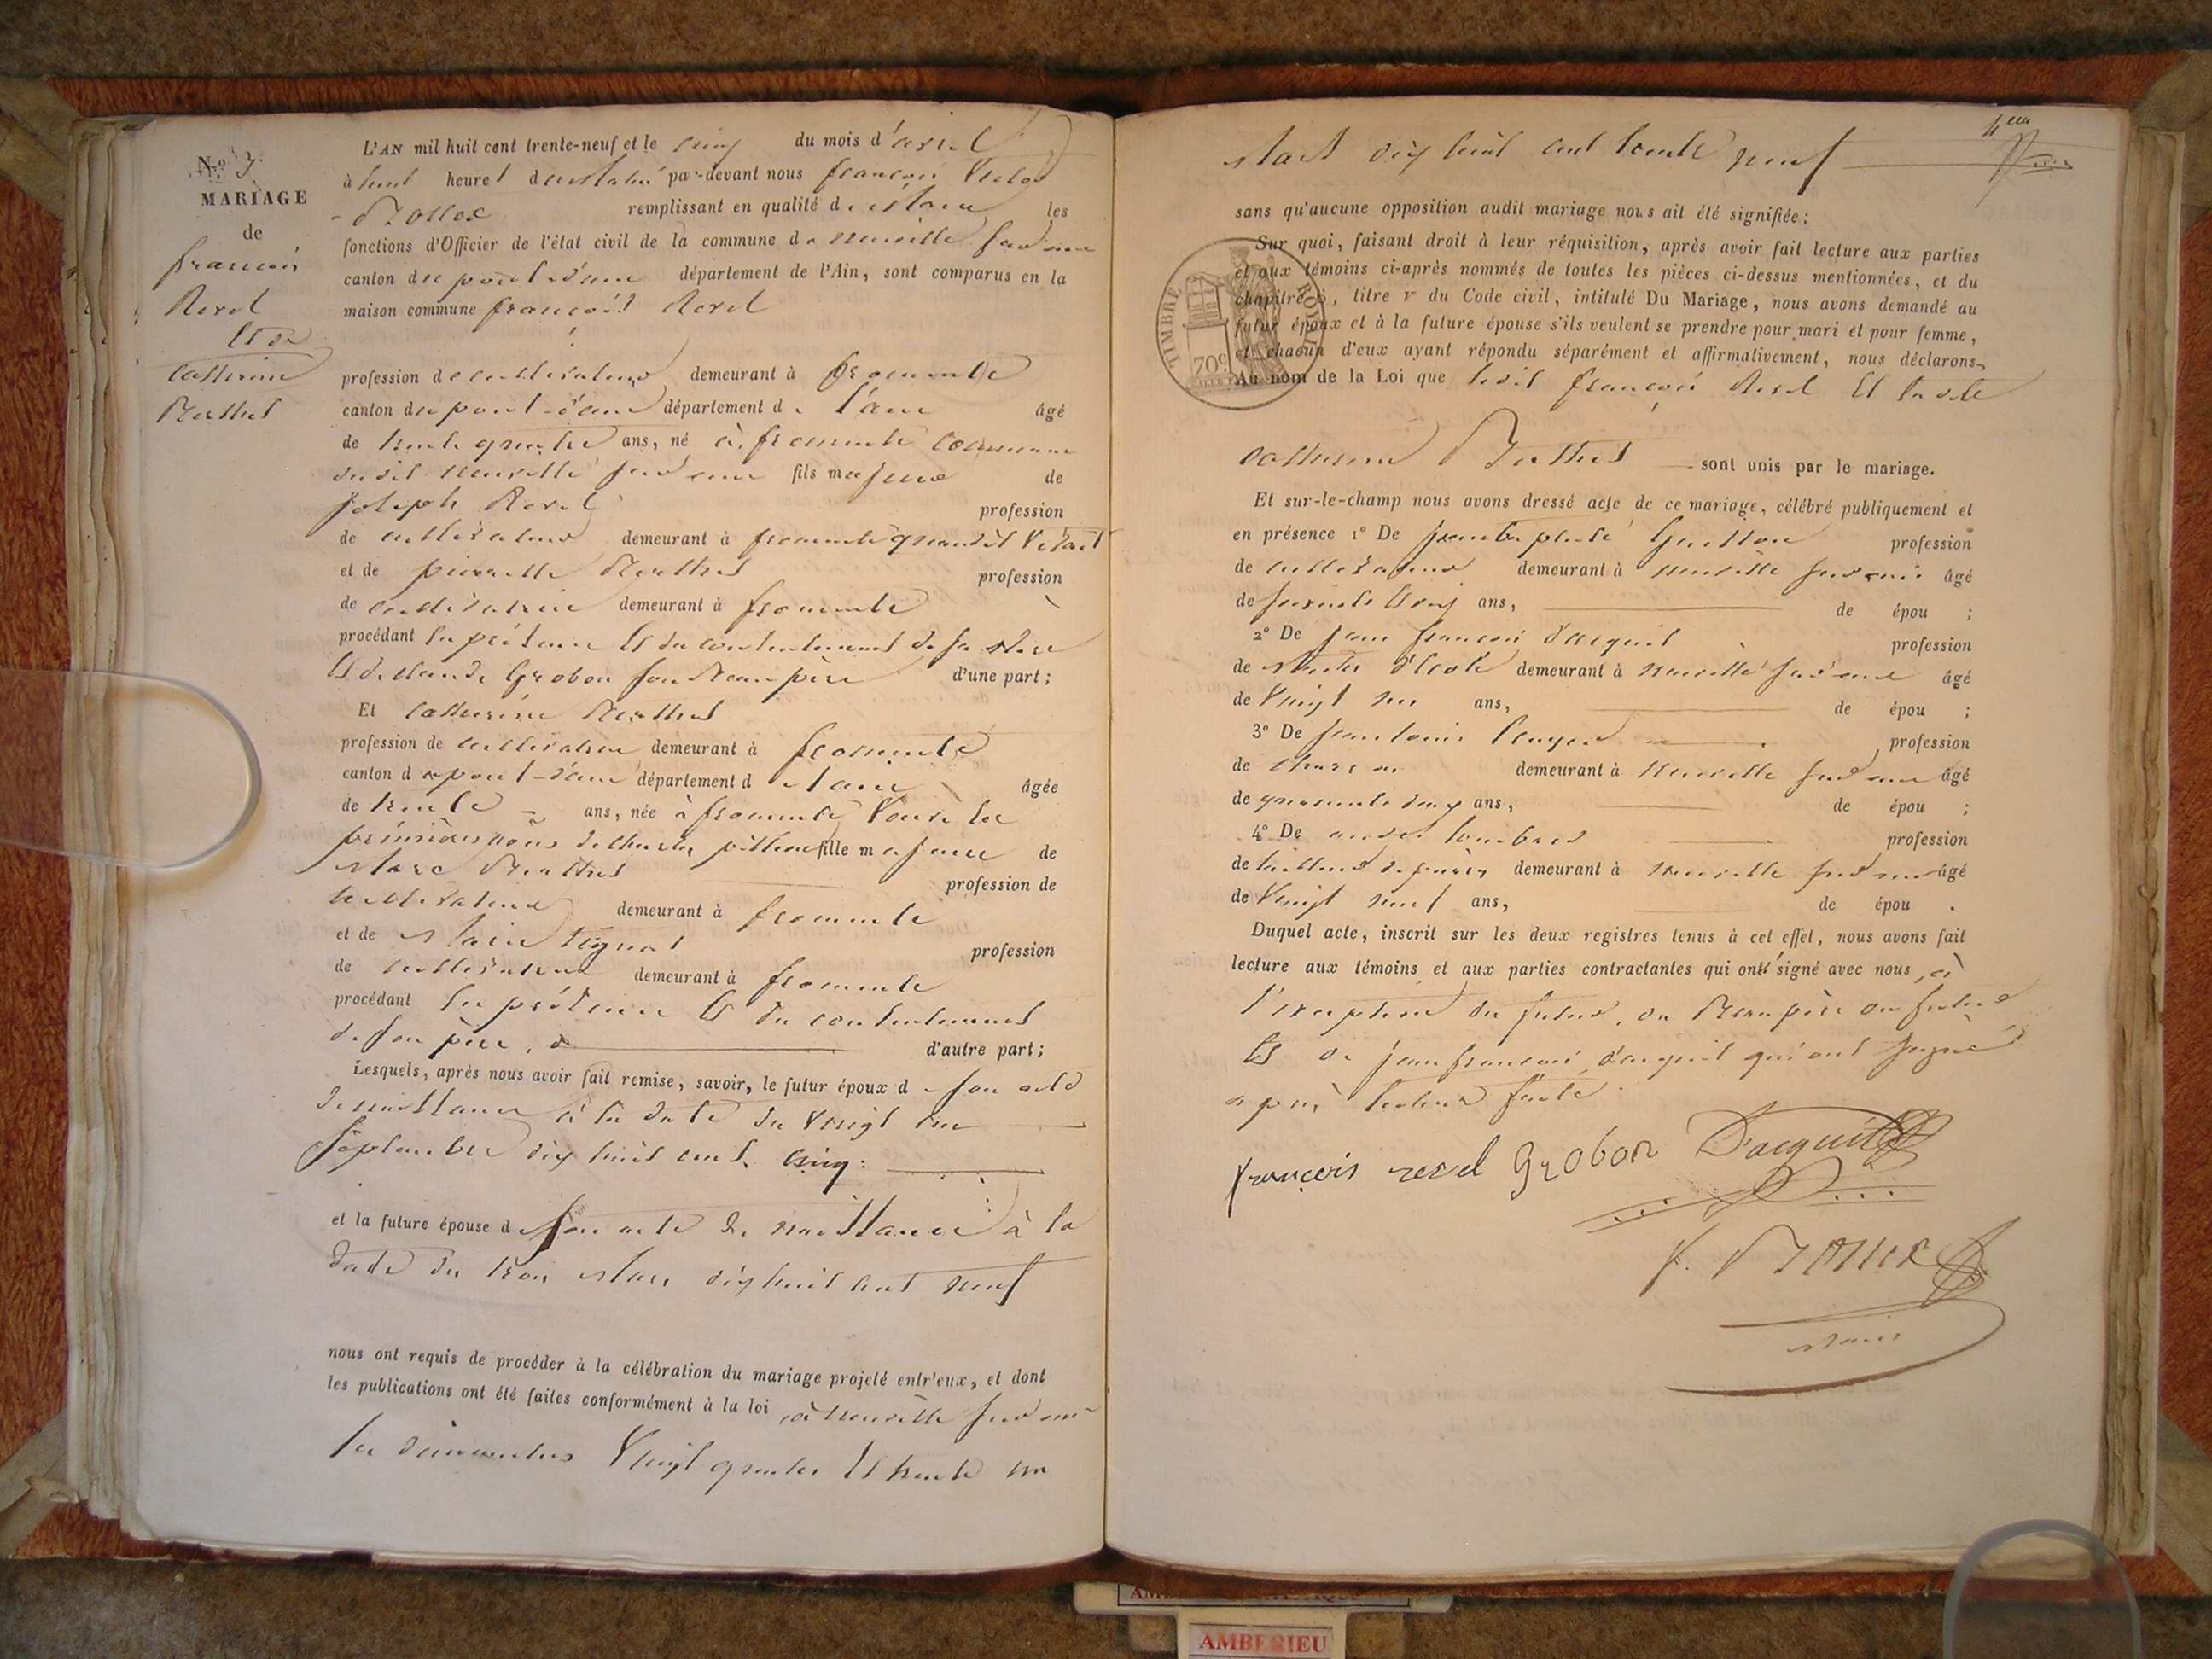 N.º 3.
MARIAGE
de
françois
Revel
Et de
Catherine
Berthet
L'AN mil huit cent trente-neuf et le cinq du mois d'avril
à huit heures du matin par-devant nous françois Victor
remplissant en qualité de maire les
fonctions d'Officier de l'état civil de la commune de neuville sur ain
canton du pont-d'ain département de l'Ain, sont comparus en la
maison commune françois Revel
profession de cultivateur demeurant à fromente
canton du pont-d'ain département de l'ain âgé
de trente quatre ans, né à fromente commune
dudit neuville sur ain fils majeur de
joseph Revel profession
de cultivateur demeurant à fromente quand il vivait
et de pierrette Berthet profession
de cultivatrice demeurant à fromente
procédant en présence et du consentement de sa mere
et de claude Grobon son Beau père d'une part;
Et Catherine Berthet
profession de cultivatrice demeurant à fromente
canton du pont-d'ain département de l'ain âgée
de trente ans, née à fromente sous les
prénoms fille majeure de
marc Berthet profession de
cultivateur demeurant à fromente
et de marie profession
de cultivatrice demeurant à fromente
procédant en présence et du consentement
de son père, d'autre part;
Lesquels, après nous avoir fait remise, savoir, le futur époux de son acte
de naissance à la date du vingt un
septembre dix huit cent cinq:
et la future épouse de son acte de naissance à la
date du trois mars dix huit cent neuf
nous ont requis de procéder à la célébration du mariage projeté entr'eux, et dont
les publications ont été faites conformément à la loi à neuville sur ain
les dimanches vingt quatre et trente un
mars dix huit cent trente neuf
sans qu'aucune opposition audit mariage nous ait été signifiée;
Sur quoi, faisant droit à leur réquisition, après avoir fait lecture aux parties
et aux témoins ci-après nommés de toutes les pièces ci-dessus mentionnées, et du
chapitre 6, titre v du Code civil, intitulé Du Mariage, nous avons demandé au
futur époux et à la future épouse s'ils veulent se prendre pour mari et pour femme,
et chacun d'eux ayant répondu séparément et affirmativement, nous déclarons,
Au nom de la Loi que ledit françois Revel et ladite
TIMBRE ROYAL
70c
Catherine Berthet sont unis par le mariage.
Et sur-le-champ nous avons dressé acte de ce mariage, célébré publiquement et
en présence 1º De jean baptiste Guillon profession
de cultivateur demeurant à neuville sur ain âgé
de soixante cinq ans, de épou ;
2º De jean françois d'acquit profession
de maitre d'école demeurant à neuville sur ain âgé
de vingt ans, de épou ;
3º De jean louis profession
de charron demeurant à neuville sur ain âgé
de quarante deux ans, de épou ;
4º De andré profession
de tailleur de pierres demeurant à neuville sur ain âgé
de vingt neuf ans, de épou .
Duquel acte, inscrit sur les deux registres tenus à cet effet, nous avons fait
lecture aux témoins et aux parties contractantes qui ont signé avec nous, à
l'exception du futur, du Beau père du futur
et de jean françois d'acquit qui ont signé
après lecture faite
françois revel grobon Dacquit
maire
AMBERIEU